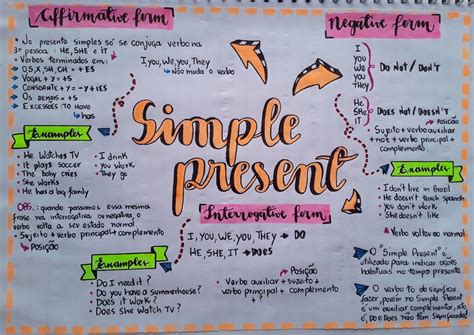 Affirmative form
• No presente simples só se conjuga verbo na
3ª pessoa : HE, SHE e IT
• Verbos terminados em:
• OS, X, SH, CH = +ES
• VOGAL + Y = +S
• CONSOANTE + Y = -Y +IES
• Os demais = +S
• EXCESSÕES TO HAVE
HAS
I, you, We, you, They
Não muda o verbo
Negative form
I
you
WE
you
THEY
DO NOT / DON'T
HE
SHE
IT
DOES NOT / DOESN'T
Posição
Sujeito + verbo auxiliar
+ not + verbo principal +
complemento.
Simple
present
Examples
• He Watches TV
• It plays soccer
• The baby cries
• She works
• He has a big family
• I drink
• you work
• They go
OBS: quando passamos essa mesma
frase na interrogativa ou negativa, o
verbo volta a seu estado normal
• Sujeito + verbo principal + complemento
Posição
Examples
• Do I need it?
• Do you have a summerhouse?
• Does it work?
• Does she watch TV?
Interrogative form
I, YOU, WE, YOU, THEY → DO
HE, SHE, IT → DOES
Posição
Verbo auxiliar + sujeito +
verbo principal + complemento
+ ?
Examples
• I don't live in Brazil
• He doesn't teach spanish
• You don't work
• She doesn't like
Verbo volta ao normal
O "Simple Present" é
utilizado para indicar ações
habituais no tempo presente.
O verbo to do significa
fazer, porém no Simple Present é
um auxiliar complementar, isto
é, Do e Does não têm significado!